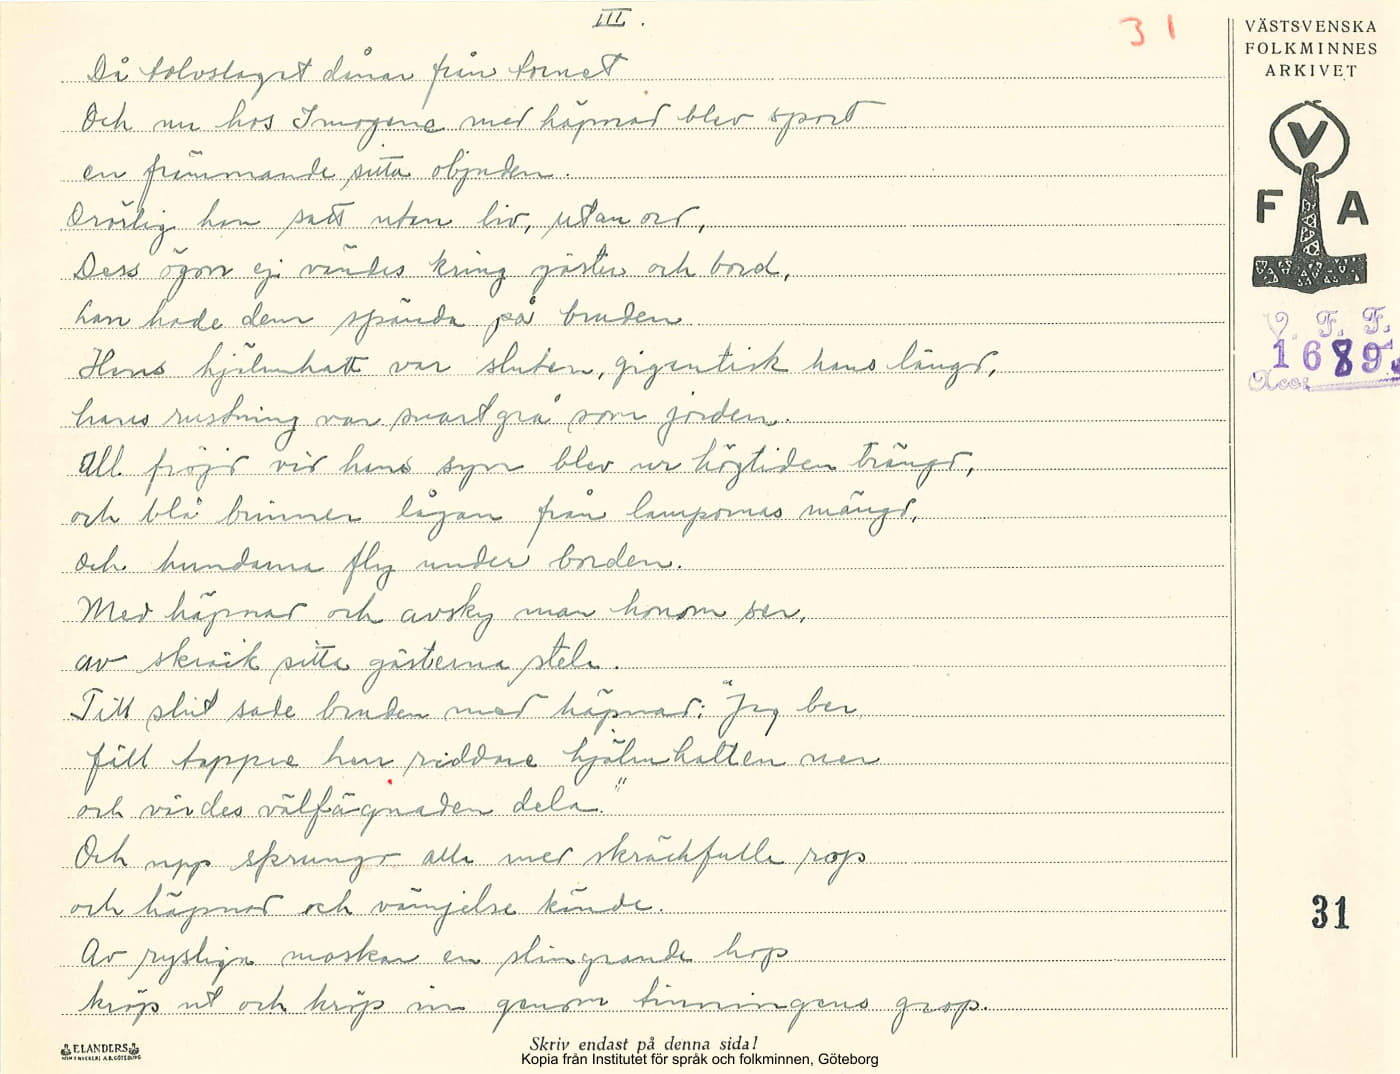 III.
31
VÄSTSVENSKA
FOLKMINNES
ARKIVET
V
F A
V. F. F.
1689
Acc:
Då tolvslaget dånar från tornet
Och nu hos Imogene med häpnad blev sport
en främmande sitta objuden.
Orörlig han satt utan liv, utan ord,
Dess ögon ej vändes kring gäster och bord,
han hade dem spända på bruden
Hans hjälmhatt var sluten, gigantisk hans längd,
hans rustning var svart grå som jorden.
All fröjd vid hans syn blev ur högtiden trängd,
och blå brinner lågan från lampornas mängd,
och hundarna fly under borden.
Med häpnad och avsky man honom ser,
av skräck sitta gästerna stela.
Till slut sade bruden med häpnad: "Jag ber
fäll tappre herr riddare hjälmhatten ner
och värdes välfägnaden dela."
Och upp sprungo alla med skräckfulla rop
och häpnad och vämjelse kände.
Av rysliga maskar en slingrande hop
kröp ut och kröp in genom tinningens grop.
31
ELANDERS
Skriv endast på denna sida!
Kopia från Institutet för språk och folkminnen, Göteborg